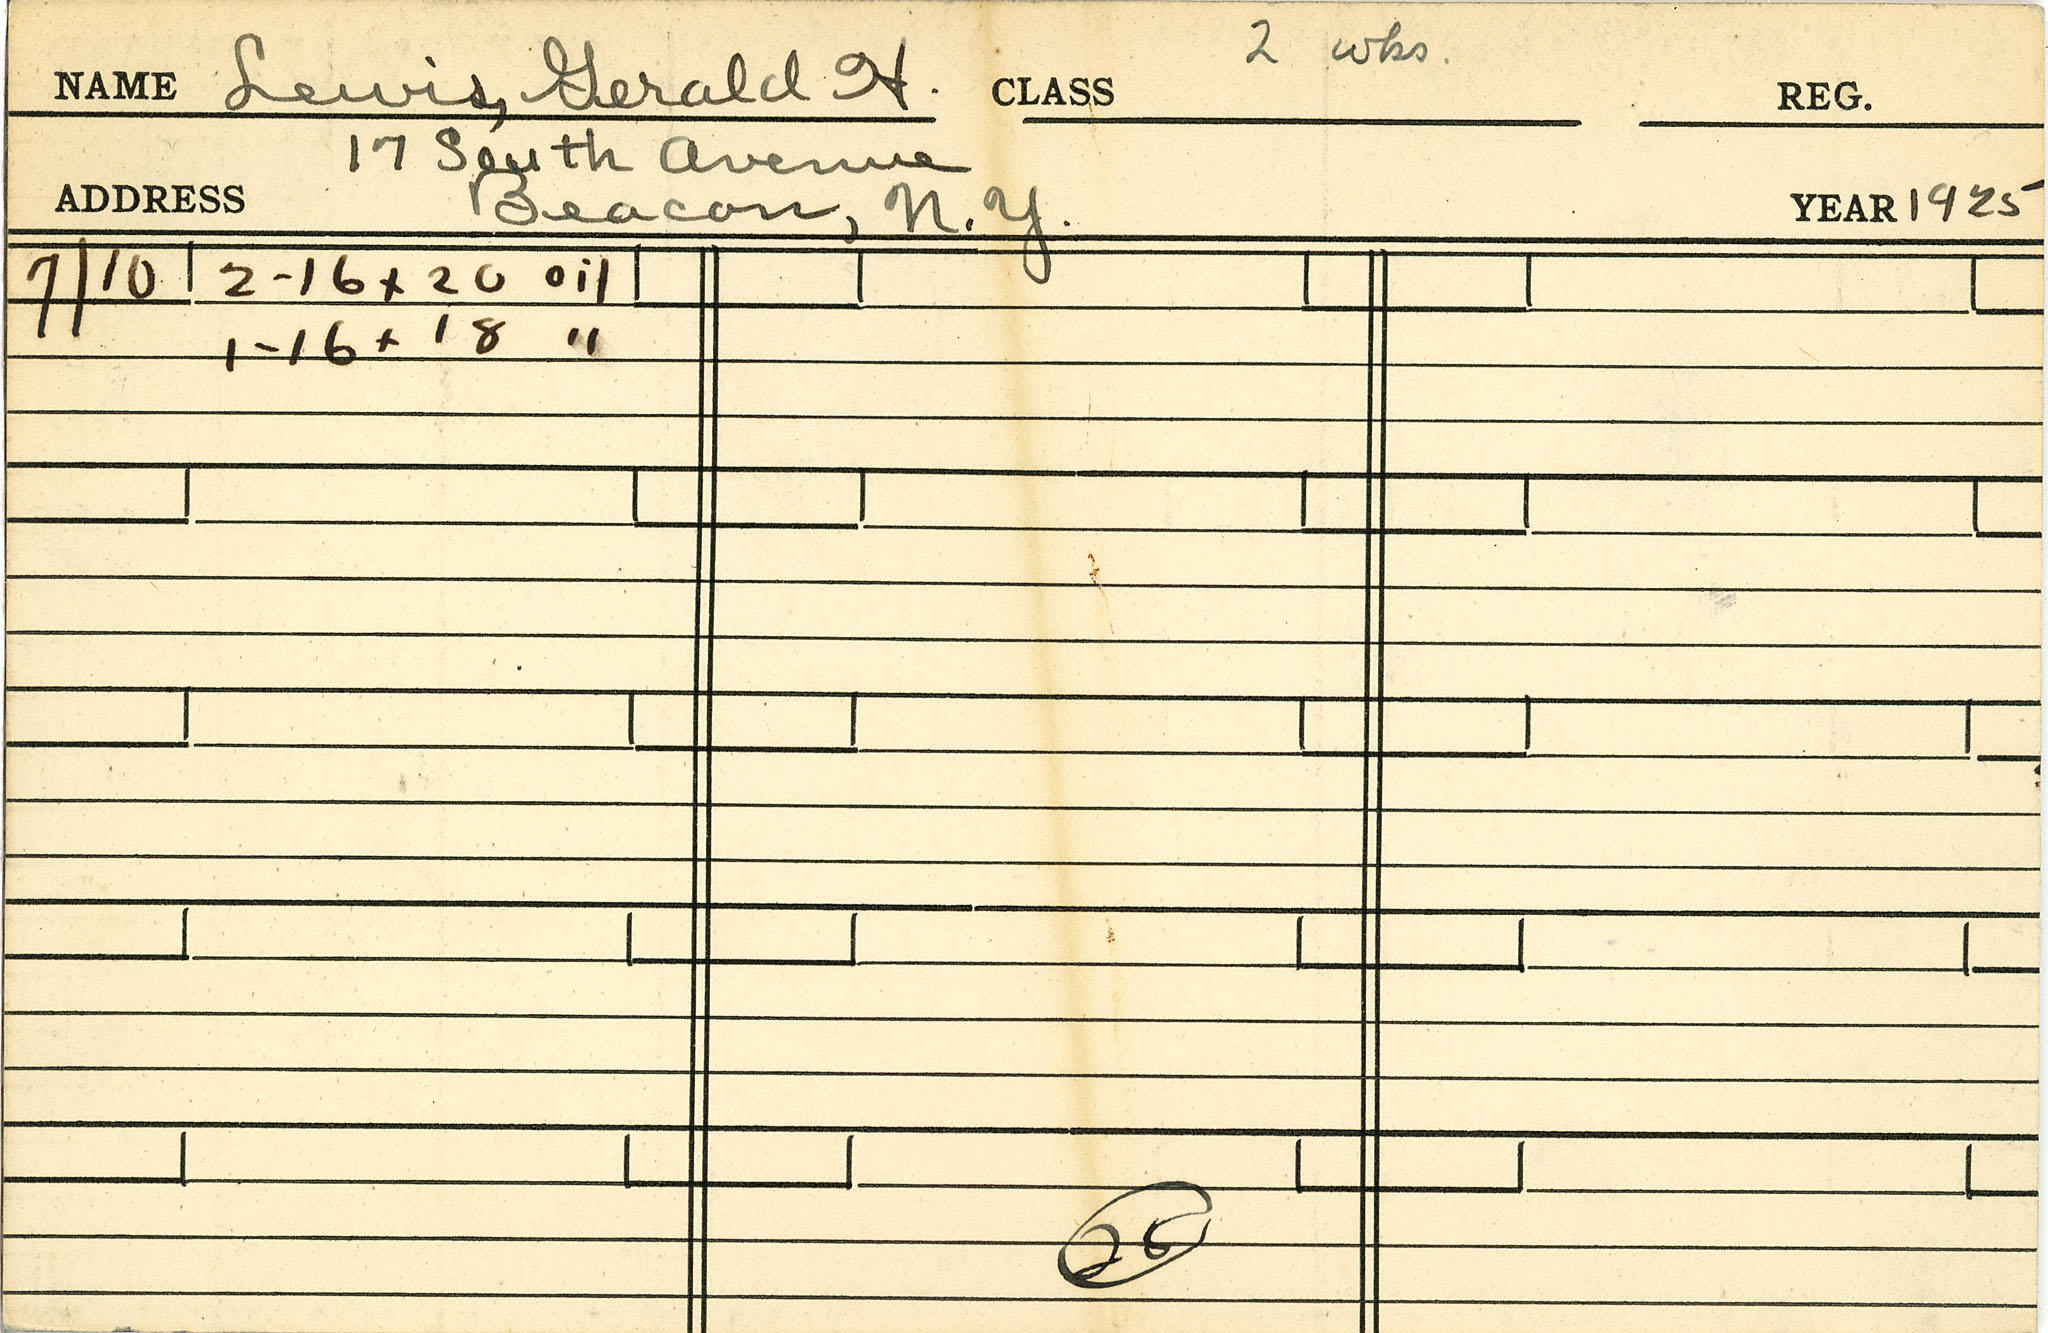 NAME Lewis, Gerald H. CLASS 2 wks. REG.
17 South Avenue
ADDRESS Beacon, N.Y. YEAR 1925
7/10 2-16 x 20 oil
1-16 x 18 "